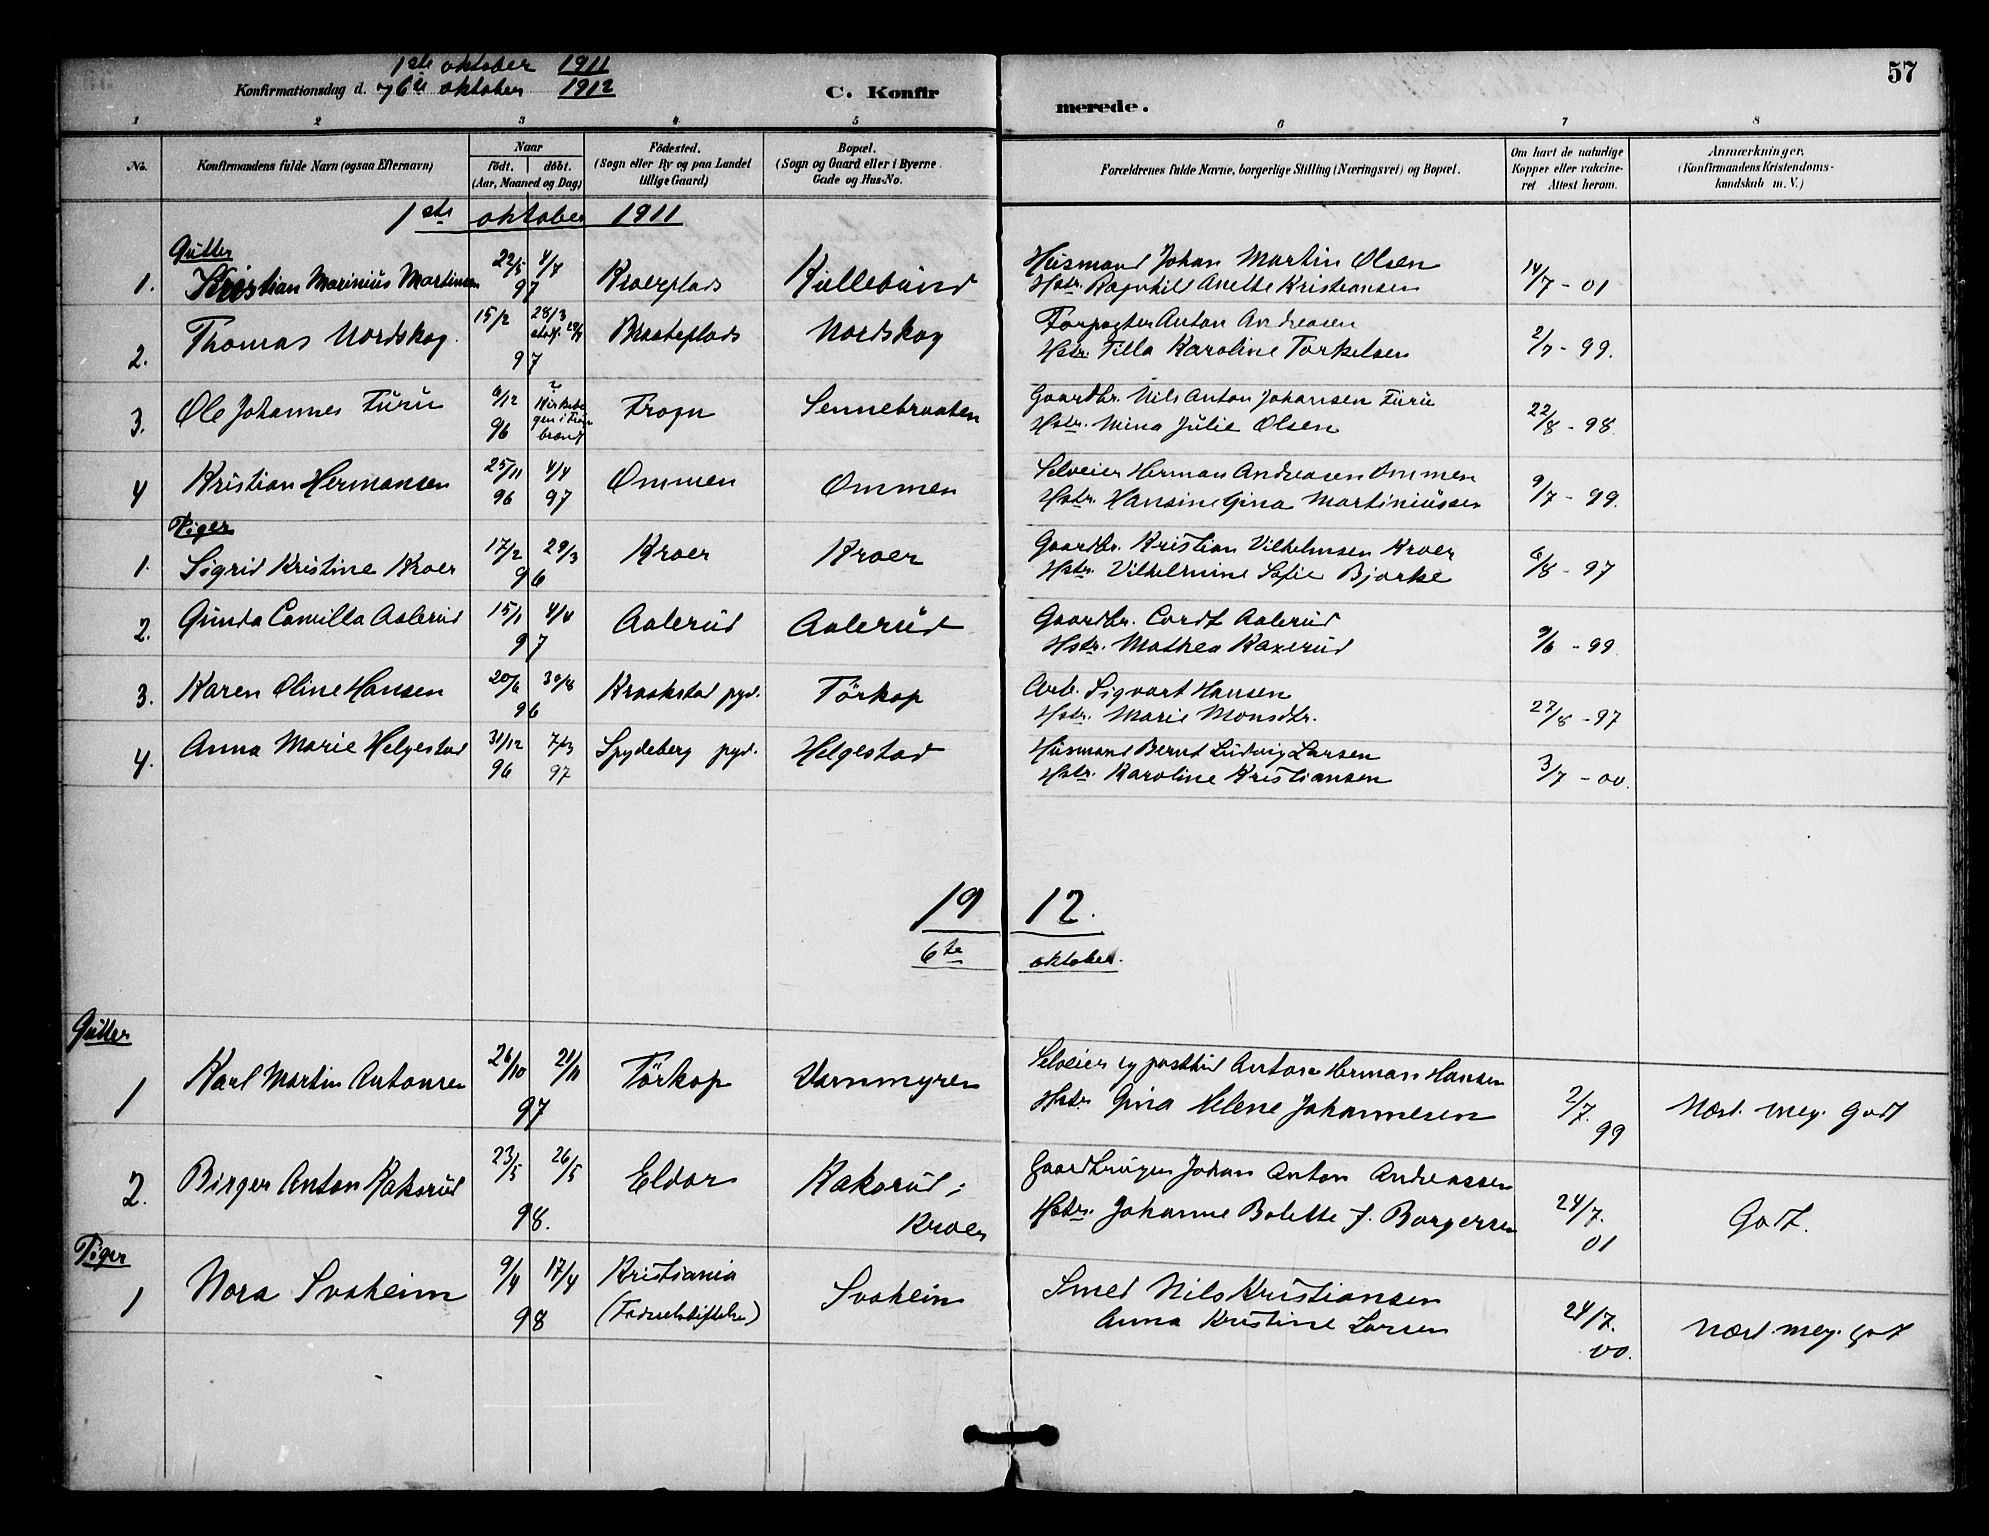 1ste oktober 1911
Konfirmationsdag d. og 6te oktober 1912
C. Konfirmerede.
57
1 2 3 4 5 6 7 8
No.
Konfirmandens fulde Navn (ogsaa Efternavn)
Naar
født. | døbt.
(Aar, Maaned og Dag)
Fødested.
(Sogn eller By og paa Landet
tillige Gaard)
Bopæl.
(Sogn og Gaard eller i Byerne
Gade og Hus-No.
Forældrenes fulde Navne, borgerlige Stilling (Næringsvei) og Bopæl.
Om havt de naturlige
Kopper eller vakcine-
ret Attest herom.
Anmærkninger.
(Konfirmandens Kristendoms-
kundskab m. V.)
1ste oktober 1911
Gutter
1. Kristian Marinius Martinsen 22/5 4/7 97 Kroerplads Kullebund Husmand Johan Martin Olsen
Hstr. Ragnhild Anette Kristiansen 14/7 - 01
2. Thomas Nordskog 15/2 28/3 97 Braateplads Nordskog Forpagter Anton Andreasen
Hstr. Tilla Karoline Torkelsen 2/7 - 99.
3. Ole Johannes Furu 6/12 96 ? Kirkebo-
gen i Frogn
brændt Frogn Sennebraaten Gaardbr. Nils Anton Johansen Furu
Hstr. Mina Julie Olsen 22/8 - 98
4 Kristian Hermansen 25/11 96 4/4 97 Ommen Ommen Selveier Herman Andreasen Ommen
Hstr. Hansine Gina Martiniussen 9/7 - 99.
Piger
1. Sigrid Kristine Kroer 17/2 29/3 96 Kroer Kroer Gaardbr. Kristian Vilhelmsen Kroer
Hstr. Vilhelmine Sofie Bjørke 6/8 - 97
2. Gunda Camilla Aalerud 15/1 4/4 97 Aalerud Aalerud Gaardbr. Cordt Aalerud
Hstr. Mathea Kaxerud 9/6 - 99
3. Karen Oline Hansen 20/6 30/8 96 Kraakstad pgd. Törkop Arb. Sigvart Hansen
Hstr. Marie Monsdtr. 27/8 - 97
4. Anna Marie Helgestad 31/12 96 7/3 97 Spydeberg pgd. Helgestad Husmand Bernt Ludvig Larsen
Hstr. Karoline Kristiansen 3/7 - 00.
19 12.
6te oktober.
Gutter
1 Karl Martin Antonsen 26/10 21/11 97 Törkop Vammyren Selveier og postbud Anton Herman Hansen
Hstr Gina Helene Johannesen 2/7. 99 Næst. meg. Godt
2. Birger Anton Kakorud 23/5 26/5 98. Eldor Kakorud i
Kroer Gaardbruger Johan Anton Andreassen
Hstr. Johanne Bolette J. Borgersen 24/7. 01 Godt.
Piger
1 Nora Svaheim 9/4 17/4 98 Kristiania
(Fødselsstiftelsen) Svaheim Smed Nils Kristiansen
Anna Kristine Larsen 24/7. 00. Næst. meg. godt